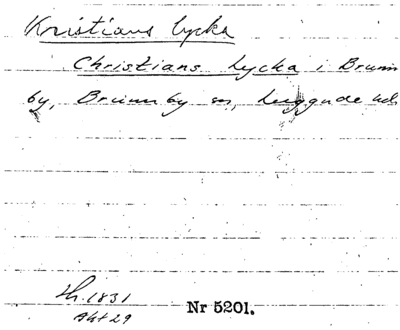 Kristians lycka
Christians Lycka i Brunn
by, Brunnby sn, Luggude hd
Lh. 1831
Akt 29
Nr 5201.